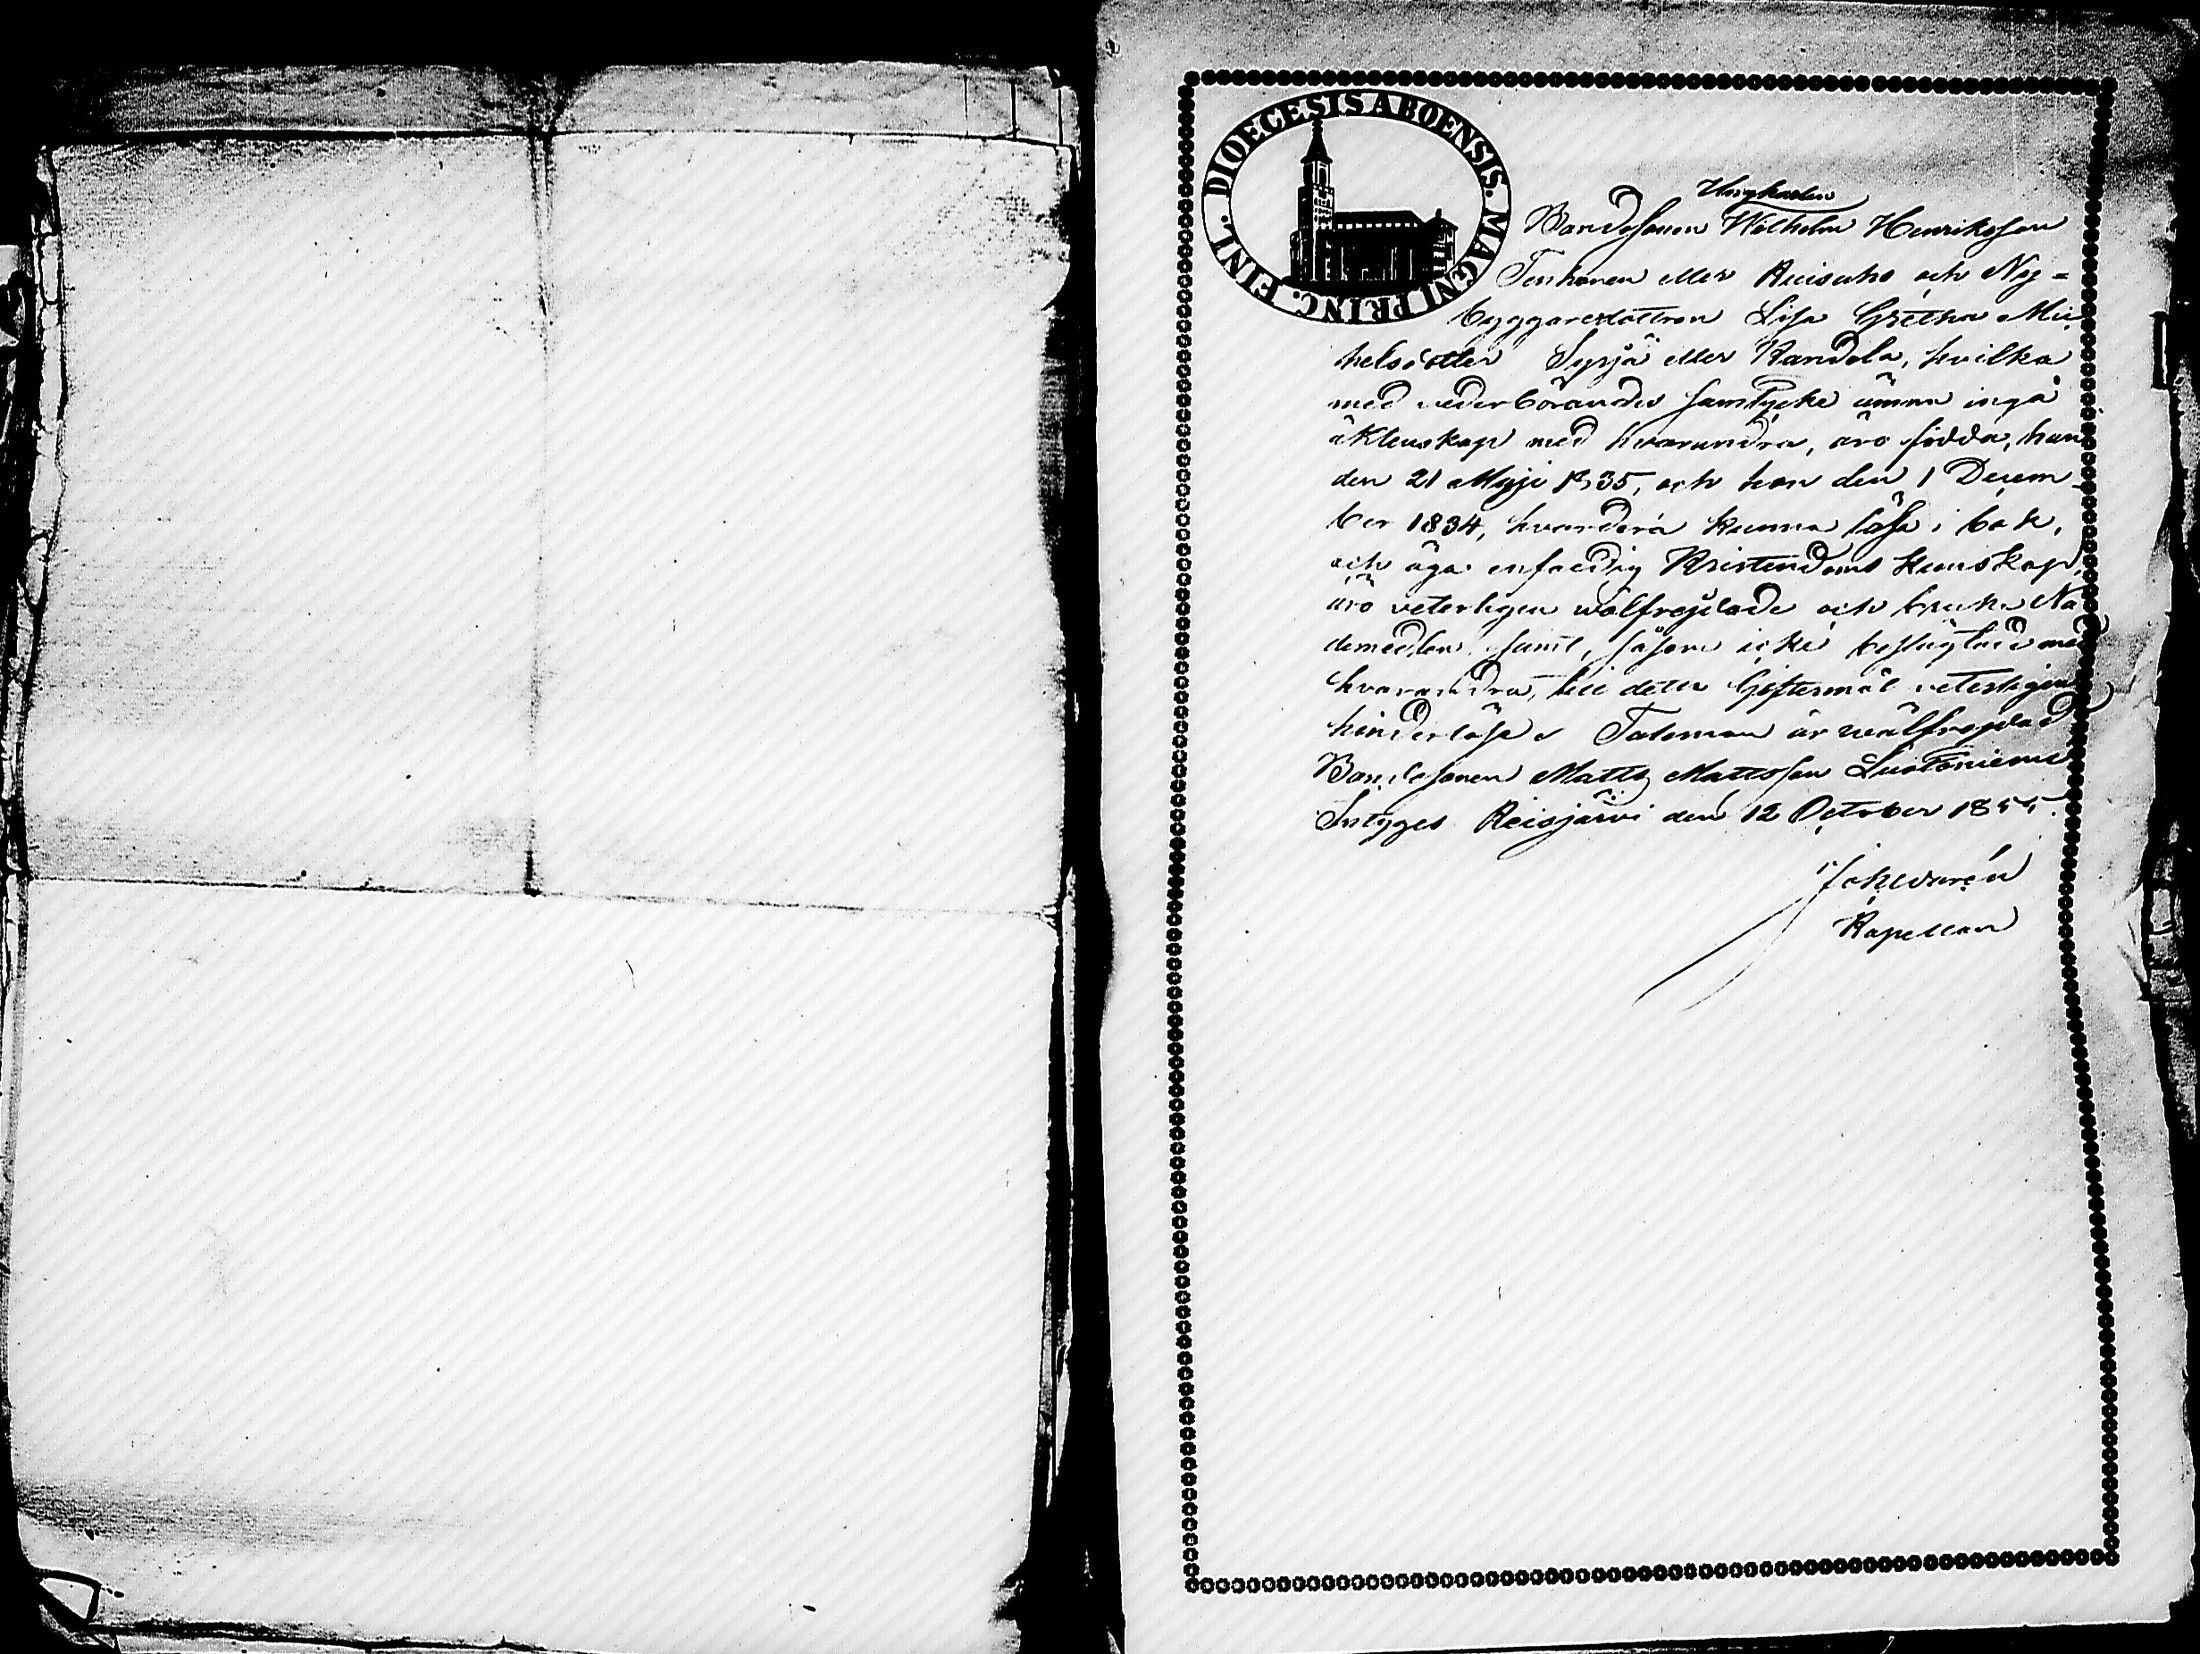 DIOECESIS ABOENSIS. MAGNI PRINC. FINL.
Ungkarlen
Bondesonen Wilhelm Henriksson
Tenhonen eller Reisuho och Ny-
byggaredottren Lisa Gretha Mic
helsdotter Syrjä eller Kandola, hvilka
med vederbörandes samtycke ämna ingå
äktenskap med hvarandra, äro födda, han
den 21 Maji 1835, och hon den 1 Decem-
ber 1834, hvardera kunna läsa i bok,
och äga enfaldig Kristendoms kunskap,
äro veterligen wälfrejdade och bruka Nå
demedlen, samt, såsom icke beslägtade med
hvarandra, till detta Giftermål veterligen
hinderlösa. Taleman är wälfrejdad
Bondesonen Matts Mattsson Luotoniemi
Intygas Reisjärvi den 12 October 1855.
Kapellan